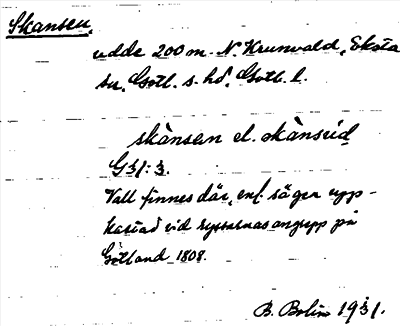 Skansen,
udde 200 m N. Krunvald, Eksta
sn, Gotl. s. hd, Gotl. l.
skànsan el. skànsud
G31:3.
Vall finnes där, enl. sägen upp-
kastad vid ryssarnas angrepp på
Gotland 1808.
B. Bolin 1931.